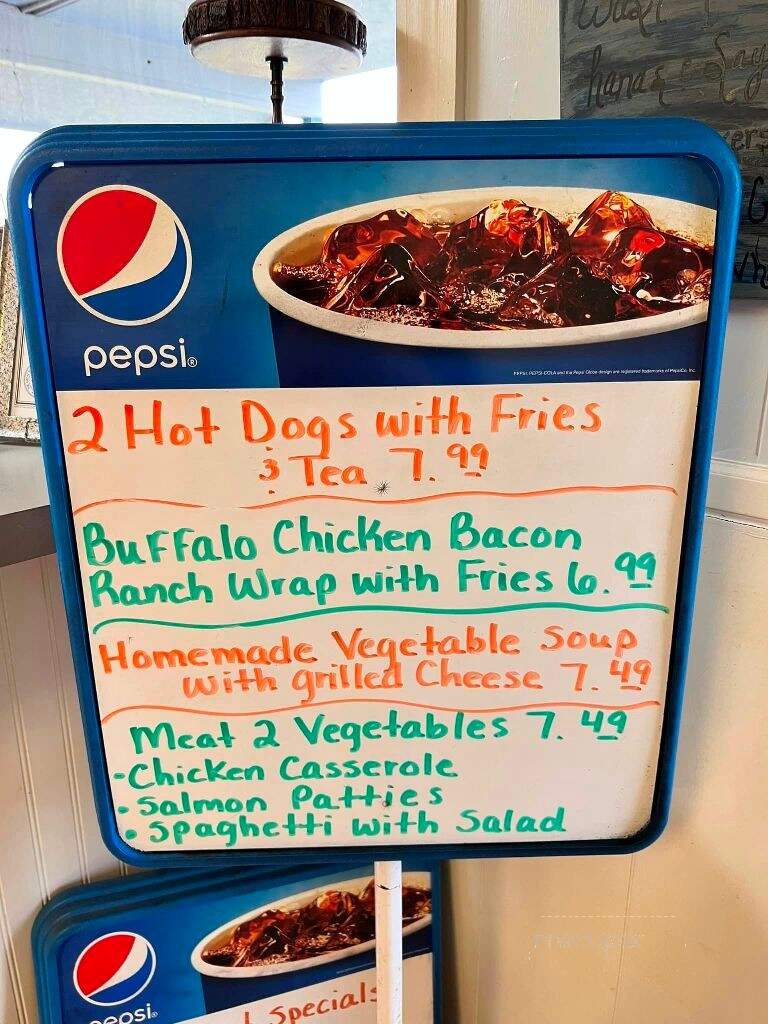 Wash
hands
pepsi®
PEPSI, PEPSI-COLA and the Pepsi Globe design are registered trademarks of PepsiCo, Inc.
2 Hot Dogs with Fries
& Tea 7.99
Buffalo Chicken Bacon
Ranch Wrap with Fries 6.99
Homemade Vegetable Soup
with grilled Cheese 7.49
Meat 2 Vegetables 7.49
•Chicken Casserole
•Salmon Patties
•Spaghetti with Salad
pepsi®
Specials